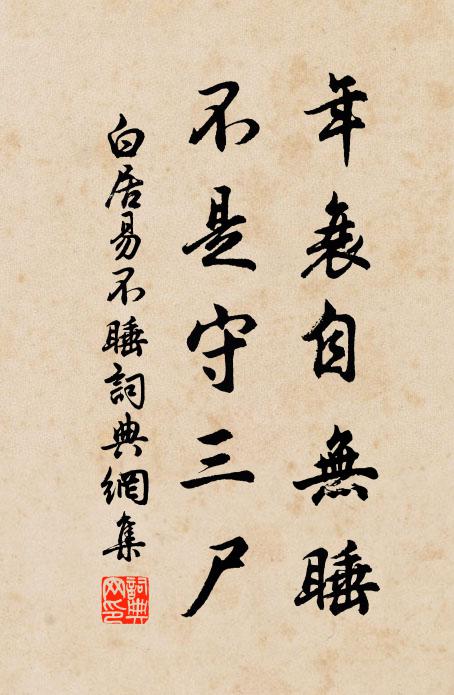 年衰自無睡
不是守三尸
白居易不睡詞典網集
詞典
网印